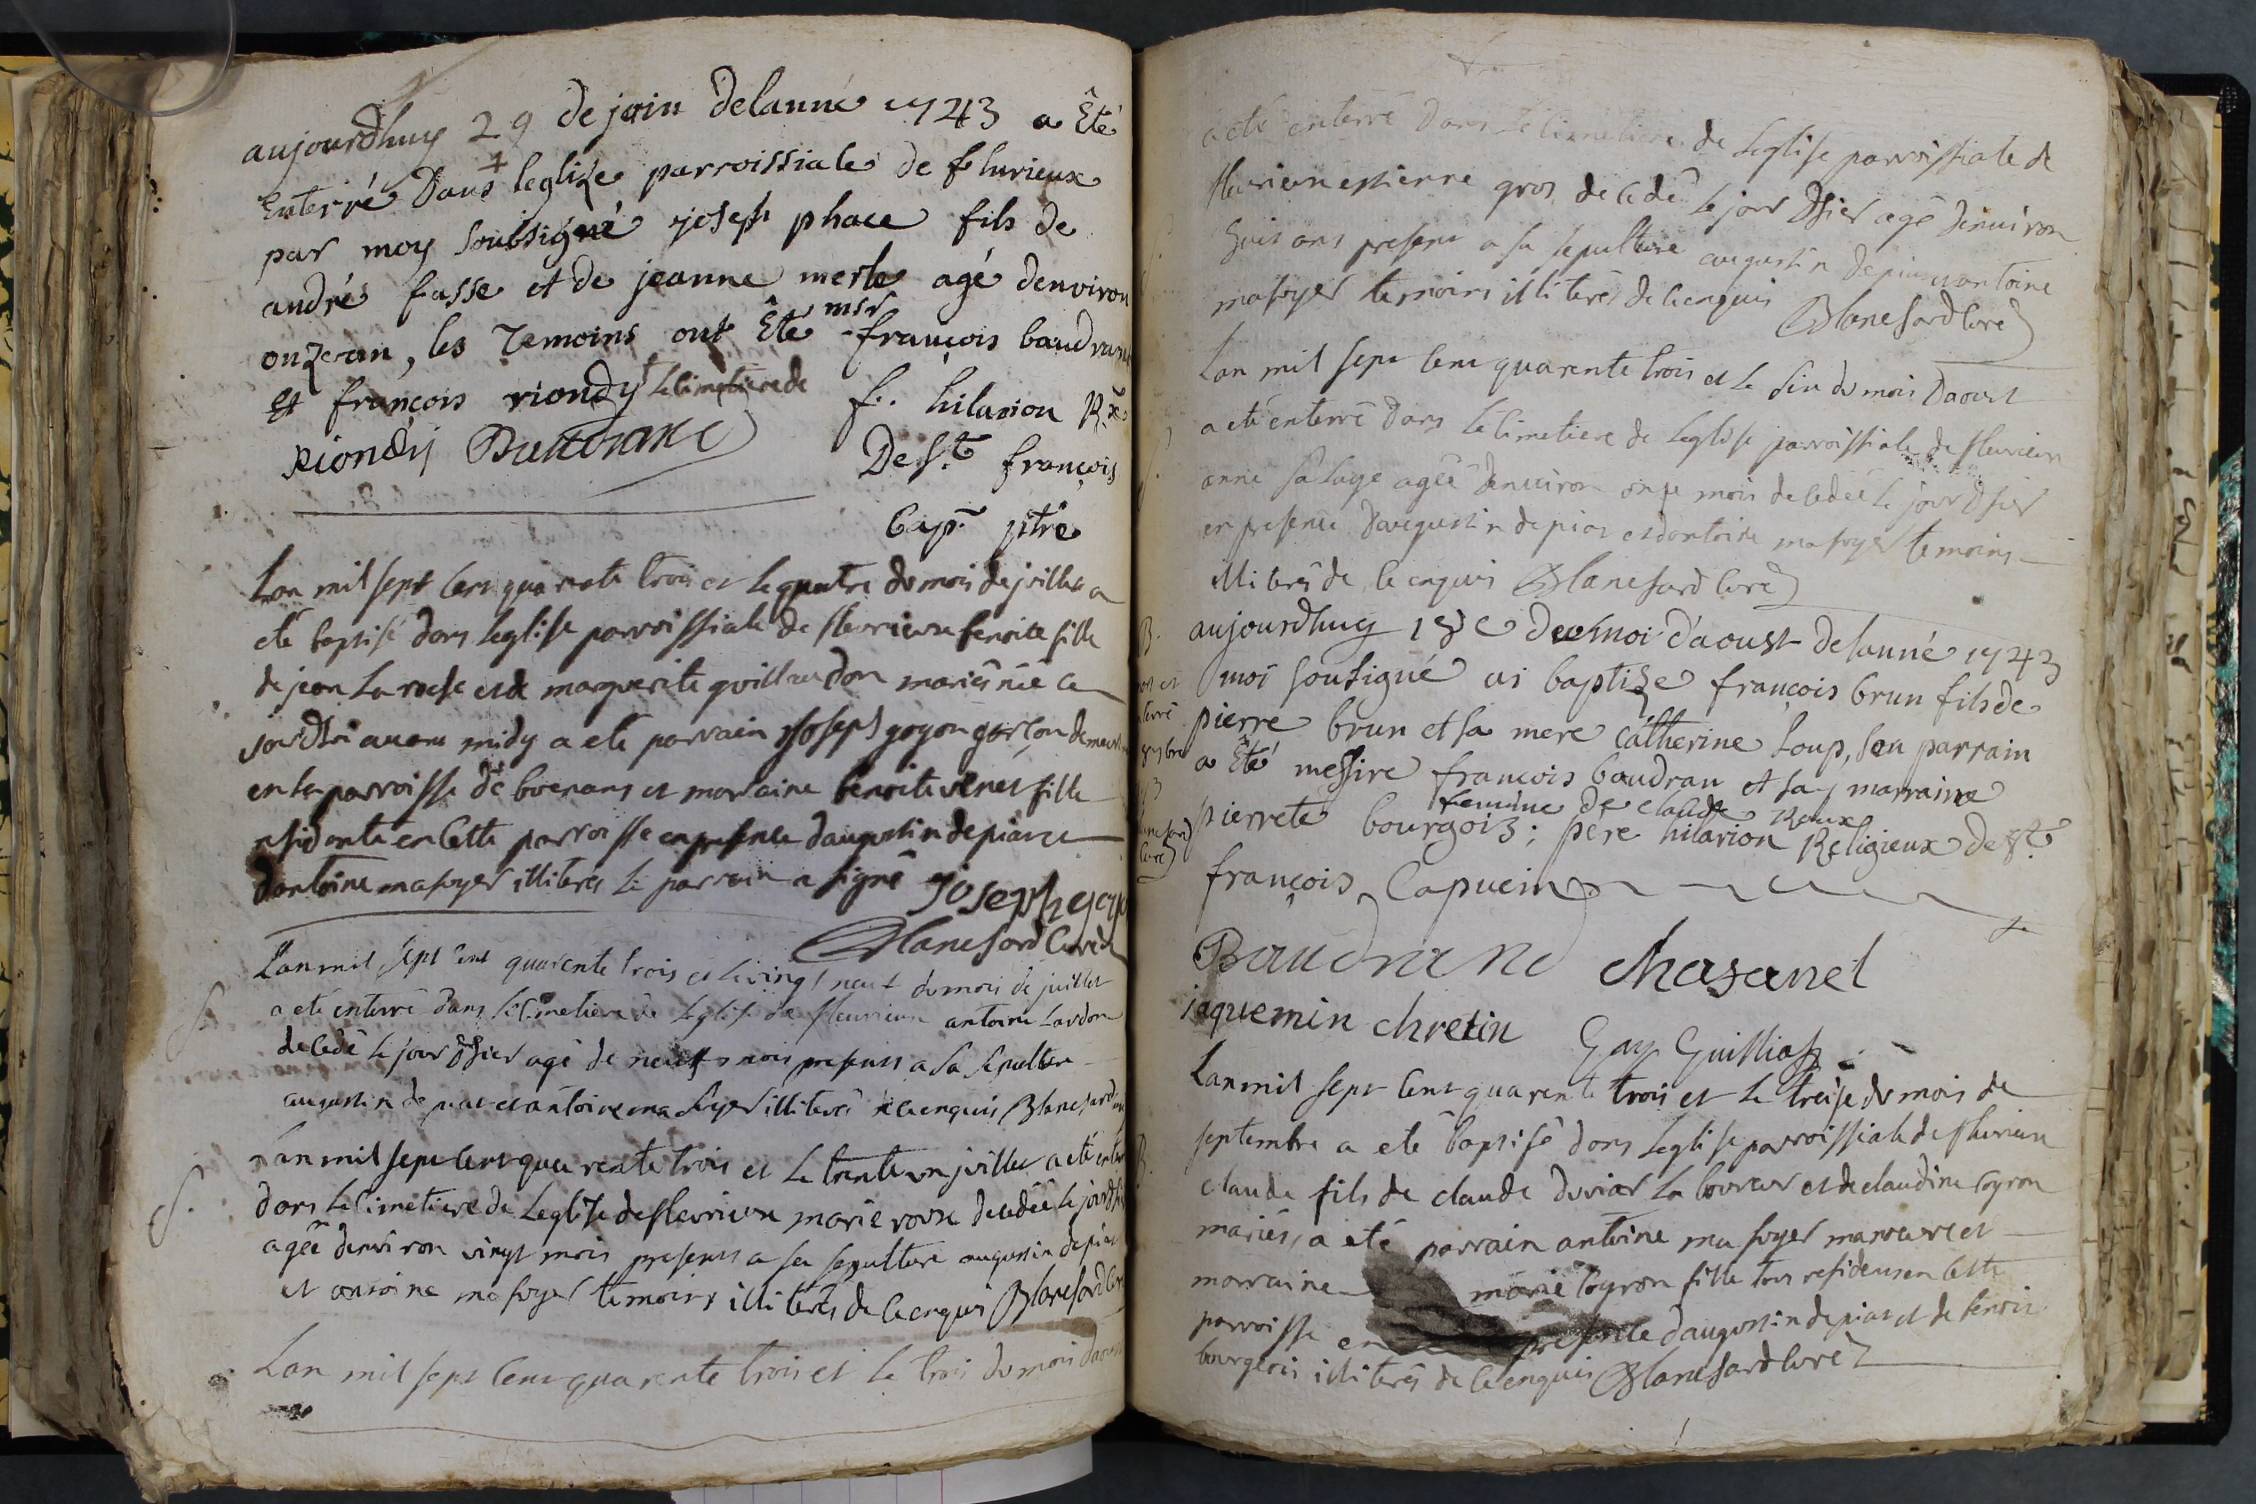 aujourdhuy 29 de join delanné 1743 a Êté
Enterré Dans leglize parroissiale de fleurieux
par moy soubsigné joseph phace fils de
andré fasse et de jeanne merle agé denviron
onze an, les Temoins ont Êté msr françois baudran
et françois riondy le cimetiere de
f. hilarion
Riondy
De St. françois
Cap. ptre
Lan mil sept cent quarante trois et le quatre du mois de juillet a
eté baptisé dans leglise parroissiale de fleurieux benoite fille
de jean Laroche et de marguerite guillaudon mariés née ce
jourdhui avant midy a eté parrain joseph goyon garçon demeurant
en la parroisse de et marraine benoite venet fille
residente en cette parroisse en presence daugustin depiar et
dantoine masoyer illiterés le parrain a signé joseph
Blanchard curé
Lan mil sept cent quarente trois et le vingt neuf du mois de juillet
a eté enterré dans le cimetiere de leglise de fleurieux antoine Lardon
decedé le jour dhier agé de neuf mois presents a sa sepulture
augustin depiar et antoine masoyer illiterés de ce enquis Blanchard
S.
Lan mil sept cent quarente trois et le trente un juillet a eté enterré
dans le cimetiere de leglise de fleurieux marie roux decedée le jour dhier
agée denviron vingt mois presents a sa sepulture augustin depiar
et antoine masoyer temoins illiterés de ce enquis Blanchard curé
S.
Lan mil sept cent quarente trois et le trois du mois daoust
a eté enterré dans le cimetiere de leglise parroissiale de
fleurieux estienne gros decedé le jour dhier agé denviron
huit ans presents a sa sepulture augustin depiar antoine
masoyer temoins illiterés de ce enquis Blanchard curé
Lan mil sept cent quarente trois et le six du mois daoust
a eté enterré dans le cimetiere de leglise parroissiale de fleurieux
anne agée denviron onze mois decedée le jour dhier
en presence daugustin depiar et dantoine masoyer temoins
illiterés de ce enquis Blanchard curé
B.
aujourdhuy 18e du moi d'aoust delanné 1743
moi sousigné ai baptize françois brun fils de
pierre brun et sa mere catherine Loup, son parrain
a Êté messire françois baudran et sa marraine
femme de claude Roux
pierrete bourgois; père hilarion Religieux de St.
françois Capucin
Baudrand Chasanel
jaquemin chretin Gay Guilliat
B.
Lan mil sept cent quarente trois et le treise du mois de
septembre a eté baptisé dans leglise parroissiale de fleurieux
claude fils de claude duviar laboureur et de claudine coyron
mariés, a eté parrain antoine masoyer et
marraine marie coyron fille tous residents en cette
parroisse en presence daugustin depiar et de benoit
bourgeois illiterés de ce enquis Blanchard curé